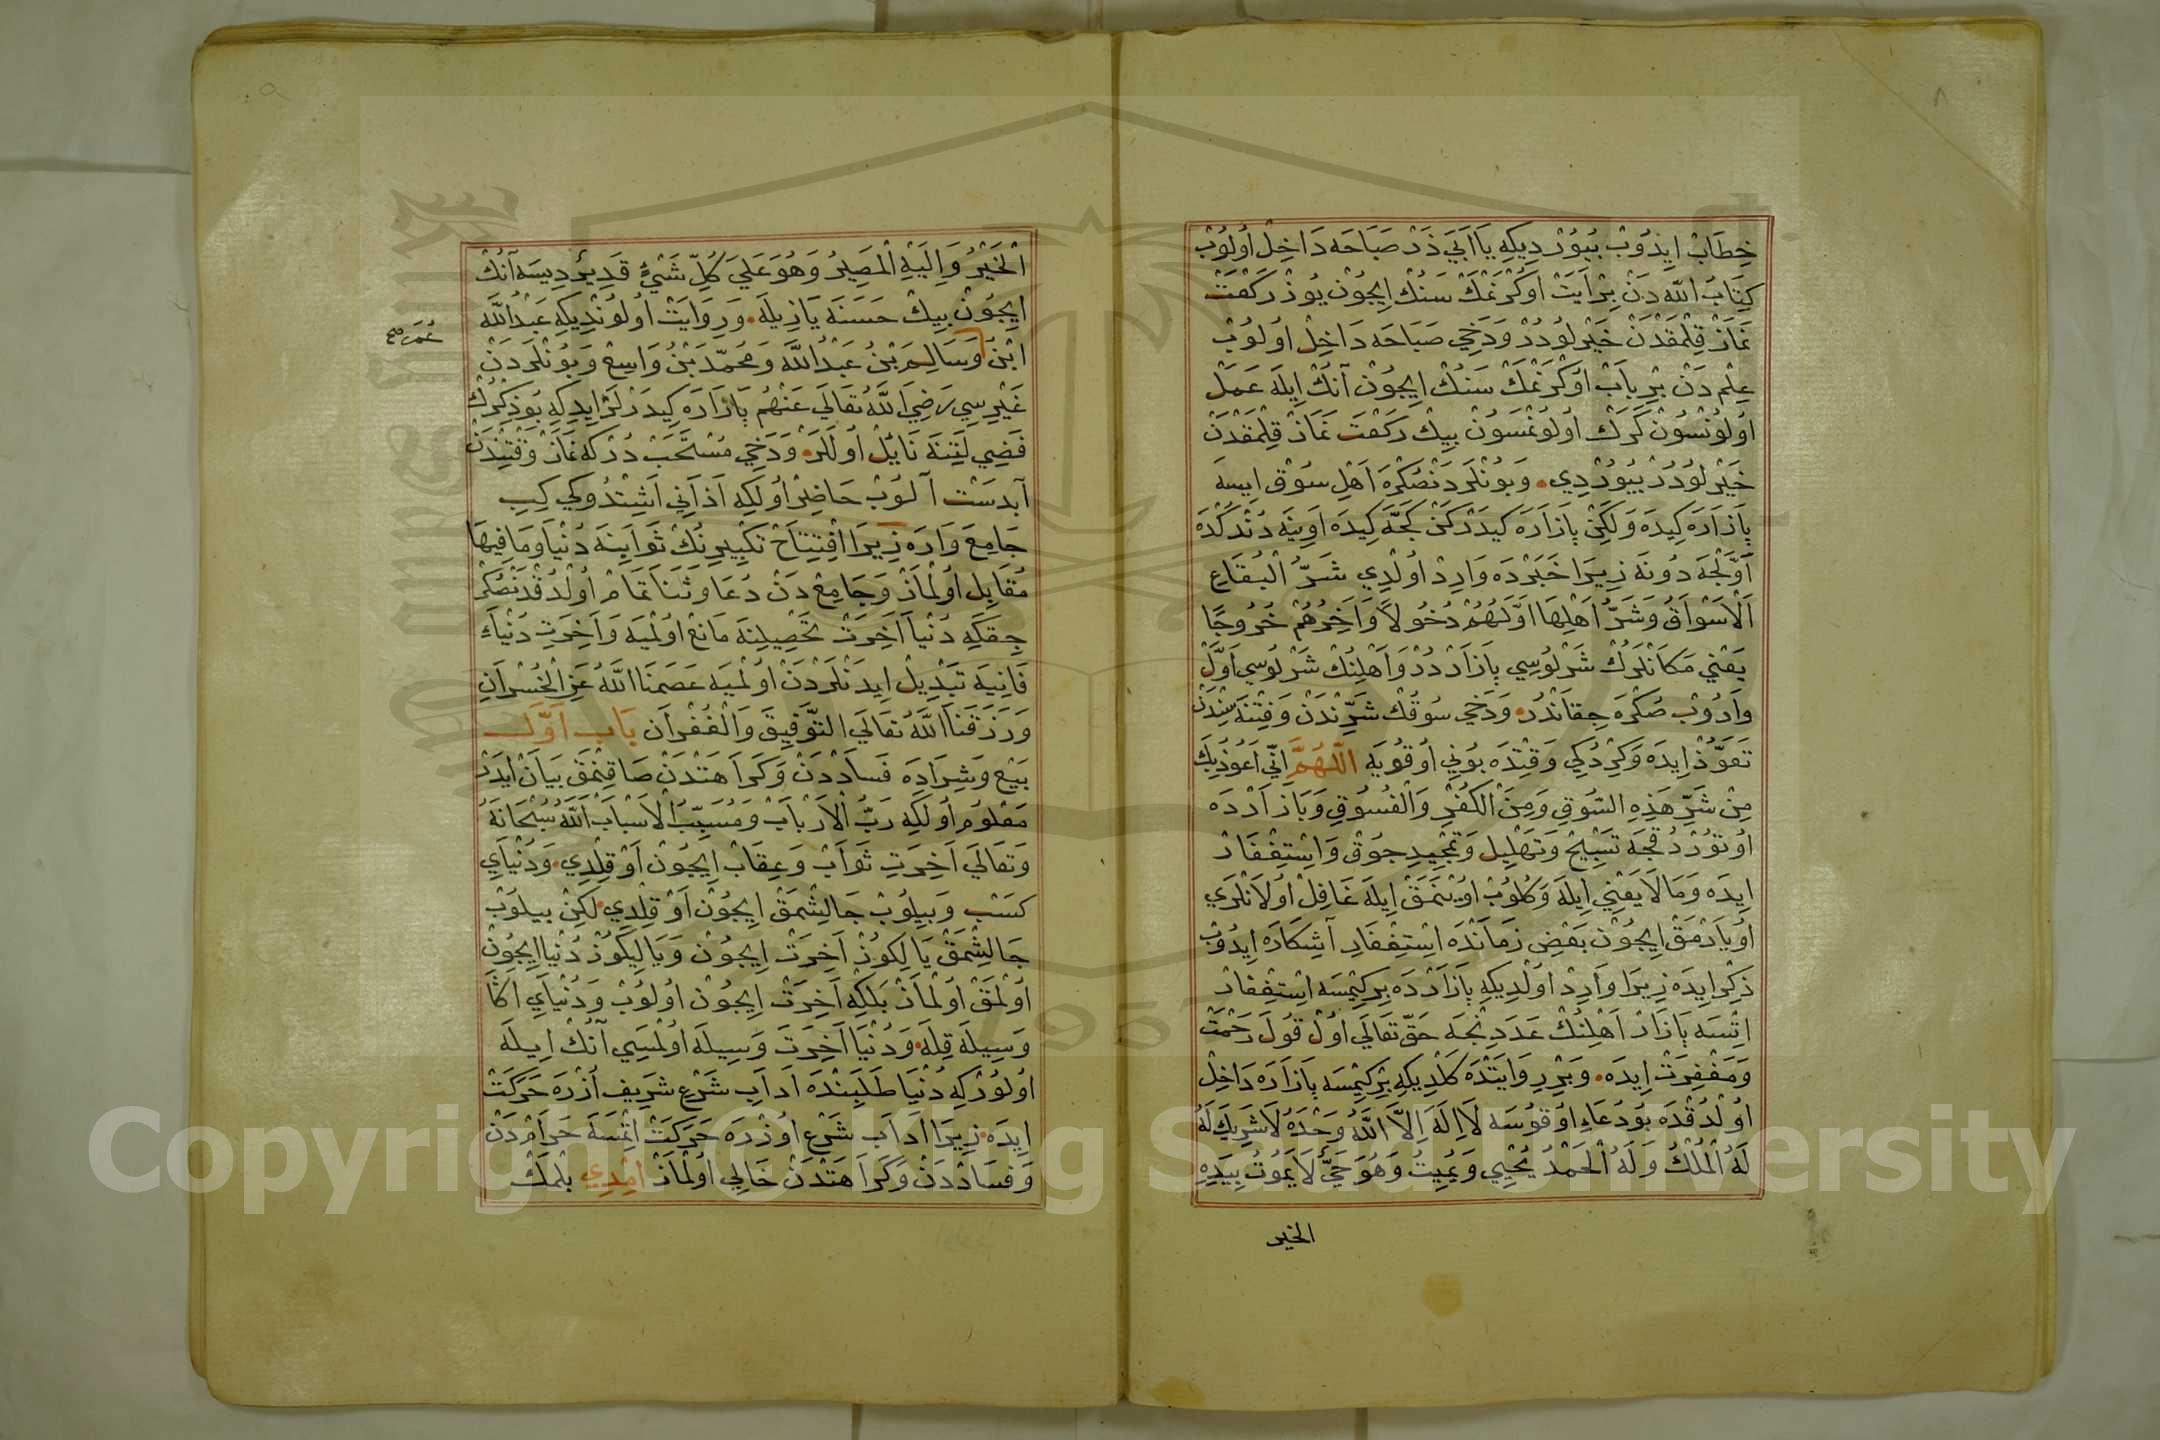 خِطَابْ ايِدُوبْ بُيُورْدِيكِه يَا اَبَي ذَرْ صَبَاحَه دَاخِلْ اُولُوبْ
كِتَابُ الله دن بِرْ اٰيَتْ اوُكْرَنْمَكْ سَنُكْ اِيچُونْ يُوزْ رَكْعَتْ
نَمَازْ قِلْمَقْدَنْ خَيْرلُودُرْ وَدَخِي صَبَاحَه دَاخِلْ اوُلُوبْ
عِلْم دَنْ بِرْ بَابْ اوُكْرَنْمَكْ سَنُكْ اِيچُونْ آنُكْ اِيلَه عَمَلْ
اوُلُونْسُونْ كَرَكْ اوُلُونْمَسُونْ بِيكْ رَكْعَتْ نَمَازْ قِلْمَقْدَنْ
خَيْرلُودُرْ بُيُورْدِي وَبُونْلَردَنْصُكْرَه اَهْلِ سُوقْ اِيسَه
بَازَارَه كِيدَه وَلكِنْ بَازَارَه كيدَرْكَنْ كَجْ كِيدَه اَوِينَه دُنْدُكْدَه
اَوَّلْجَه دُونَه زِيرَا خَبَرْدَه وَارِدْ اوُلْدِي شَرُّ الْبِقَاعِ
اَلْاَسْوَاقُ وَشَرُّ اَهْلِهَا اَوَّلُهُمْ دُخُولاً وَاٰخِرُهُمْ خُرُوجًا
يَعْنِي مَكَانْلَرُكْ شَرْلوُسِي بَازَارْدُرْ وَاَهْلِنُكْ شَرْلوُسِي اَوَّلْ
وارُوبْ صُكْرَه چِقَانْدُرْ وَدَخِي سُوقُكْ شَرِّنْدَنْ وَفِتْنَه سِنْدَنْ
تَعَوُّذْ اِيدَه وَكِرْدُكِي وَقِتْدَه بُونِي اوُقُويَه اَللّهُمَّ اِنِّي اَعُوذُ بِكَ
مِنْ شَرِّ هَذِهِ السُّوقِ وَمِنَ الْكُفْرِ وَالْفُسُوقِ وَبَازَارْدَه
اوُتُورْدُقْجَه تَسْبِيحْ وَتَهْلِيل وَتَمْجِيدِ چُوقْ وَاِسْتِغْفَارْ
اِيدَه وَمَا لَا يَعْنِي اِيلَه وَكُلُوبْ اوُيْنَمَقْ اِيلَه غَافِلْ اوُلَانْلَرِي
اوُيَارْمَقْ اِيچُونْ بَعْضِ زَمَانْدَه اِسْتِغْفَارِ آشِكَارَه اِيدُوبْ
ذِكْرْ اِيدَه زِيرَا وَارِدْ اوُلْدِيكِه بَازَارْدَه بِر كِيمْسَه اِسْتِغْفَارْ
اِتْسَه بَازَارْ اَهْلِنُكْ عَدَدِنْجَه حَقّ تَعَالَي اوُلْ قُولَه رَحْمَتْ
وَمَغْفِرَتْ اِيدَه وَبِرْ رِوَايَتْدَه كَلْدِيكِه بِرْ كِيمْسَه بَازَارَه دَاخِلْ
اوُلْدُقْدَه بُو دُعَاءِ اوُقوُسَه لَا اِلَهَ اِلَّا اللهُ وَحْدَهُ لَا شَرِيكَ لَهُ
لَهُ الْمُلْكُ وَلَهُ الْحَمْدُ يُحْيِي وَيُمِيتُ وَهُوَ حَيٌّ لَا يَمُوتُ بِيَدِهِ
الخير
الْخَيْرُ وَاِلَيْهِ الْمَصِيرُ وَهُوَ عَلَي كُلِّ شَيْءٍ قَدِيرْ دِيسَه آنُكْ
ايِچُونْ بِيكْ حَسَنَه يَازِيلَه وَرِوَايَتْ اوُلُونْدِيكِه عَبْدُ اللّه
ابْنُ وَسَالِم بْنُ عَبْدُ اللّه وَمحَمّد بْنُ وَاسِعْ وَبُونْلَردَنْ
عُمَر صح
غَيْرِسِي رَضِيَ اللّهُ تَعَالَي عَنْهُم بَازَارَه كِيدَرْلَرْ اِيدِكِه بُو ذِكْرُكْ
فَضِيلَتِنَه نَائِلْ اوُلَلَرْ وَدَخِي مُسْتَحَبْ دُرْكه نَمَازْ وَقْتِنْدَنْ
آبدَسْت آلُوبْ حَاضِرْ اوُلَكِه اَذَانِي اَشِتْدُوكِي كِبِي
جَامِعَ وَارَه زِيرَا اِفْتِتَاحْ تَكْبِيرِنُكْ ثَوَابِنَه دُنْيَا وَمَا فِيهَا
مُقَابِل اوُلْمَازْ وَجَامِعْ دَنْ دُعَا وَثَنَا تَمَامْ اوُلْدُقْدَنْصُكْرَه
چِقَكِه دُنْيَا آخِرَتْ تَحْصِيلِنَه مَانِعْ اوُلْمَيَه وَآخِرَتِ دُنْيَاءِ
فَانِيَه تَبْدِيلْ اِيدَنْلَرْدَنْ اوُلْمَيَه عَصَمَنَا اللّهُ عَنِ الْخُسْرَانِ
وَرَزَقَنَا اللّهُ تَعَالَي التَّوْفِيقَ وَالْغُفْرَان بَابِ اَوَّل
بَيْع وَشِرَادَه فَسَادْدَنْ وَكَرَاهَتْدَنْ صَاقِنْمَقْ بَيَانْ اِيدَرْ
مَعْلُومْ اوُلَكِه رَبُّ الْاَرْبَابْ وَمُسَبِّبُ الْاَسْبَابْ اَللّهُ سُبْحَانَهُ
وَتَعَالَي آخِرَتِ ثَوَابْ وَعِقَابْ اِيچُونْ اَوْ قِلْدِي وَدُنْيَايِ
كَسْب وَيِيلُوبْ چَالِشْمَقْ اِيچُونْ اَوْ قِلْدِي لَكِنْ يِيلُوبْ
چَالِشْمَقْ يَالِكوُزْ آخِرَتْ اِيچُونْ وَيَا لِيكوُزْ دُنْيَا اِيچُونْ
اوُلْمَقْ اوُلْمَازْ بَلْكِه آخِرَتْ اِيچُونْ اوُلُوبْ وَدُنْيَايِ اَكَا
وَسِيلَه قِلَه وَدُنْيَا آخِرَتَ وَسِيلَه اوُلْمَسِي آنُكْ اِيلَه
اوُلُورْكِه دُنْيَا طَلَبِنْدَه آدَابِ شَرْعِ شَرِيفِ اُزْرَه حَرَكَتْ
اِيدَه زِيرَا آدَابِ شَرْع اوُزْرَه حَرَكَتْ اِتْمَسَه حَرَامْدَنْ
وَفَسَادْدَنْ وَكَرَاهَتْدَنْ خَالِي اوُلْمَازْ اِمْدِي بِلْمَكْ